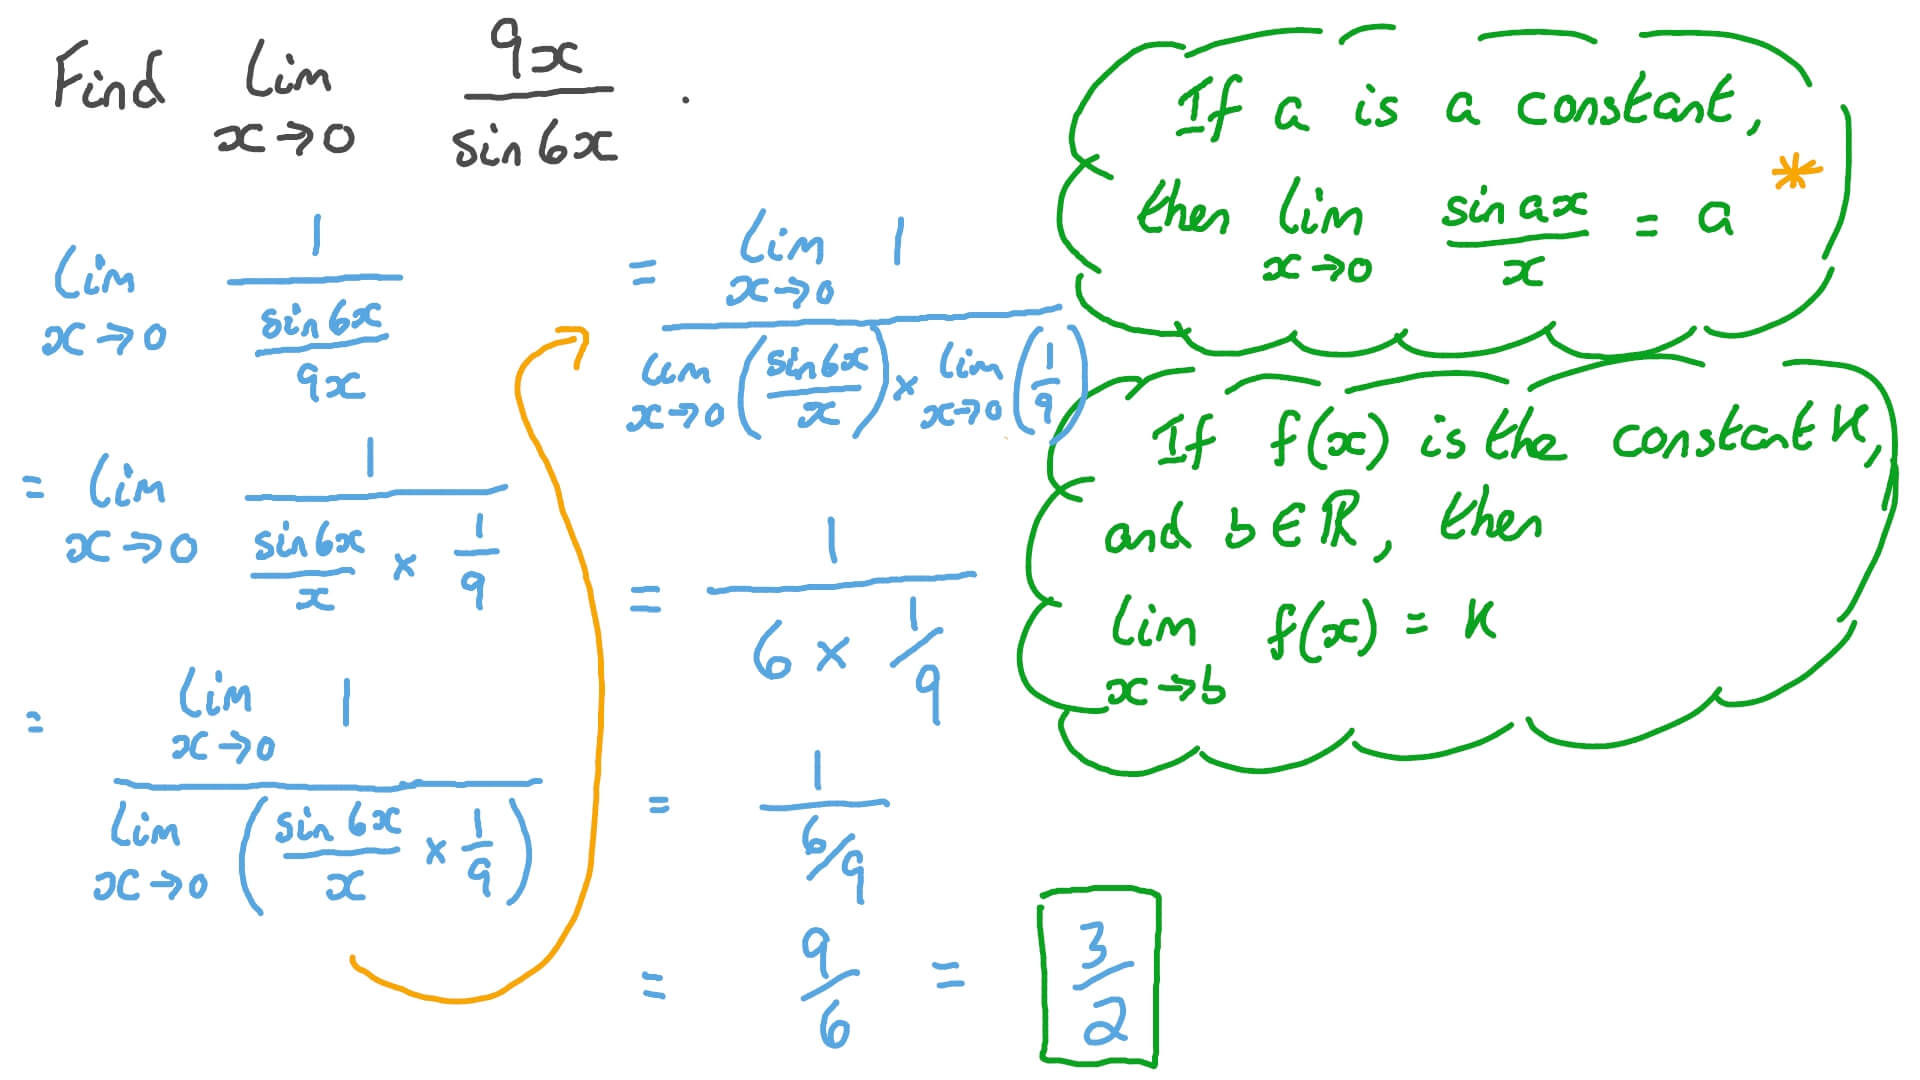 Find lim x→0 9x / sin 6x .
lim x→0 1 / (sin 6x / 9x)
= lim x→0 1 / (sin 6x / x × 1/9)
= lim x→0 1 / lim x→0 (sin 6x / x × 1/9)
= lim x→0 1 / lim x→0 (sin 6x / x) × lim x→0 (1/9)
= 1 / (6 × 1/9)
= 1 / (6/9)
= 9/6 = 3/2
If a is a constant,
then lim x→0 sin ax / x = a *
If f(x) is the constant K,
and b ∈ ℝ, then
lim x→b f(x) = K